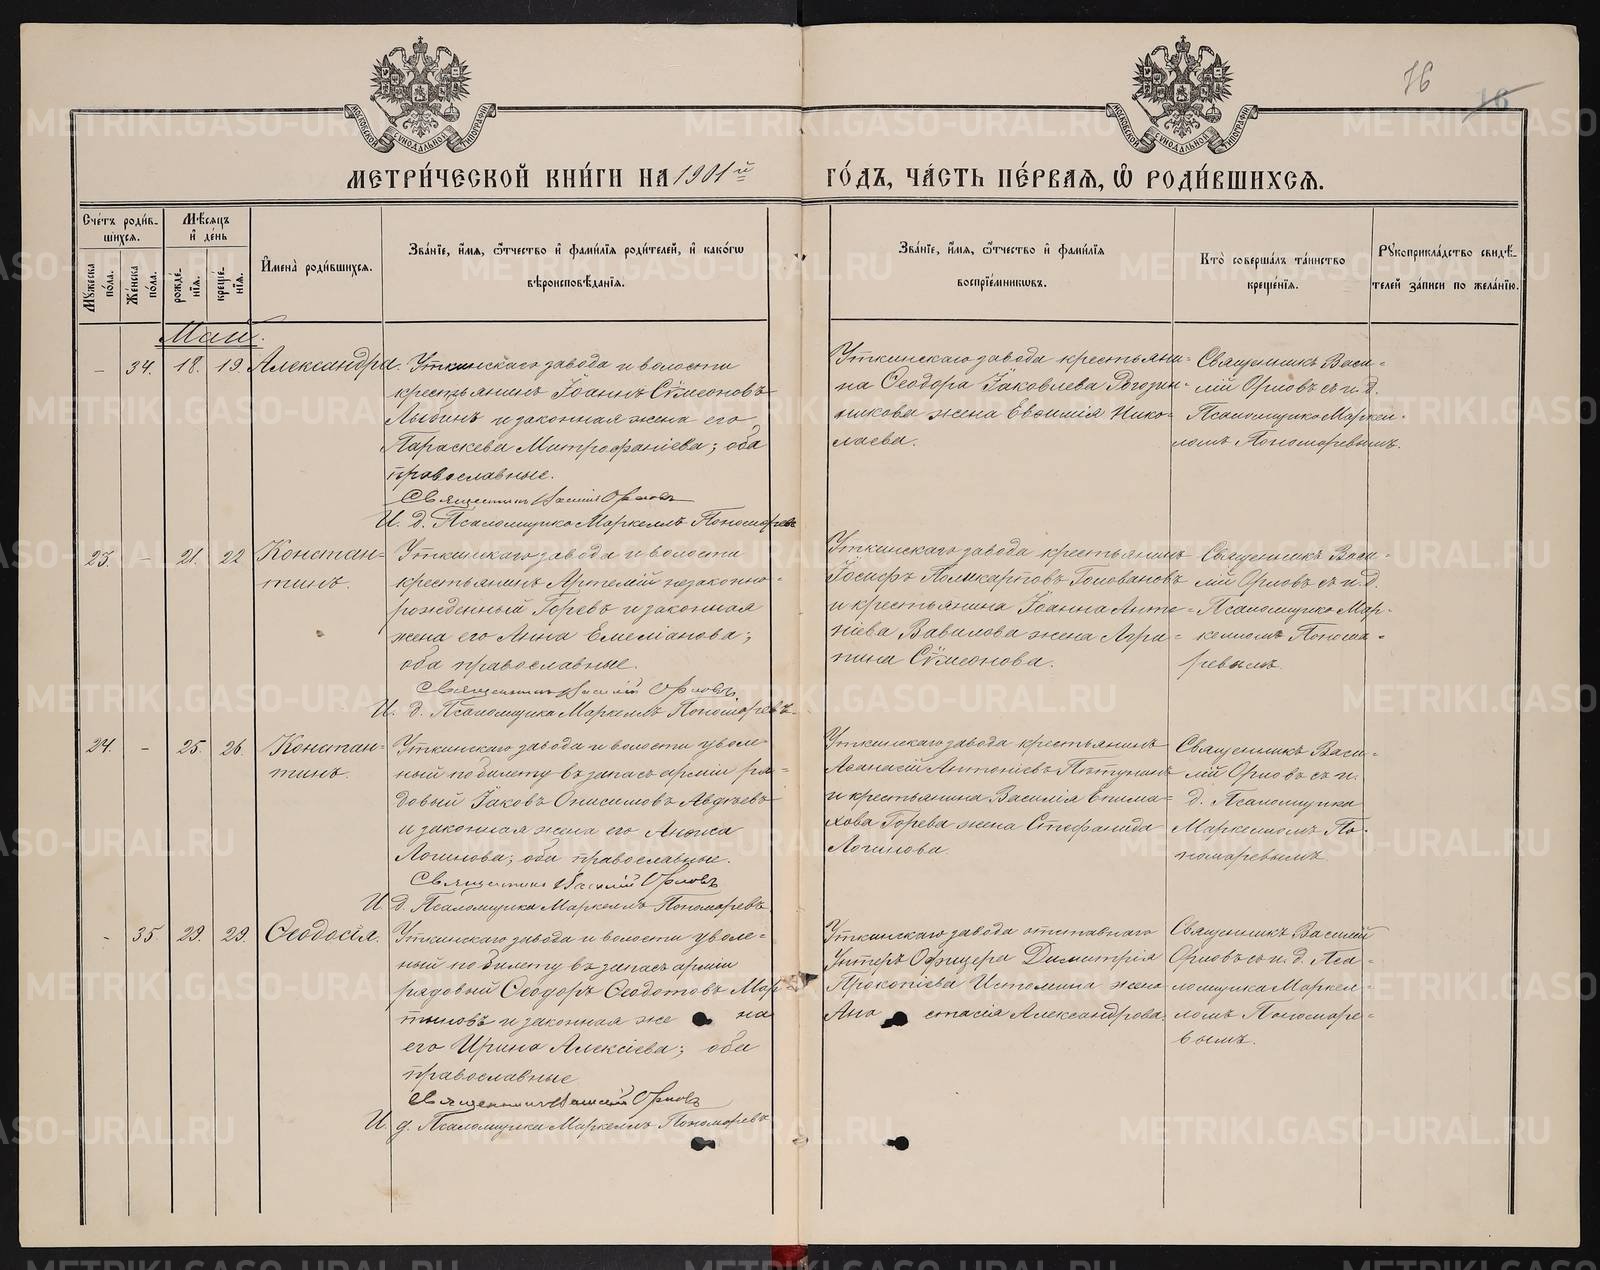 76
16
МЕТРИ́ЧЕСКОЙ КНИ́ГИ НА 1901й
ГО́ДЪ, ЧА́СТЬ ПЕ́РВАѦ, Ѽ РОДИ́ВШИХСѦ.
Сче́тъ роди́в-
шихся.
Мѣ́сяцъ
и҆ де́нь
Мꙋ́жеска по́ла.
Же́нска по́ла.
рожде́нїѧ.
креще́нїѧ.
И҆мена̀ роди́вшихсѧ.
Зва́нїе, и҆́мѧ, ѻ҆́тчество и҆ фами́лїѧ роди́телей, и҆ како́гѡ
вѣроисповѣ́данїѧ.
Зва́нїе, и҆́мѧ, ѻ҆́тчество и҆ фами́лїѧ
воспрїе́мникѡвъ.
Кто̀ соверша́лъ та́инство
креще́нїѧ.
Рꙋкоприкла́дство свидѣ́-
телей за́писи по жела́нїю.
Май.
– 34. 18. 19. Александра.
Уткинскаго завода и волости
крестьянинъ Іоаннъ Сѵмеоновъ
и законная жена его
Параскева Митрофаніева; оба
православные.
Священникъ Василій Орловъ
И. д. Псаломщика Маркеллъ Пономаревъ
Уткинскаго завода крестьяни-
на Ѳеодора Іаковлева Рогозин-
никова жена Евѳимія Нико-
лаева.
Священникъ Васи-
лій Орловъ съ и. д.
Псаломщика Маркел-
ломъ Пономаревымъ.
23. – 21. 22 Констан-
тинъ.
Уткинскаго завода и волости
крестьянинъ Артемій незаконно-
рожденный Горевъ и законная
жена его Анна Емеліанова;
оба православные.
Священникъ Василій Орловъ
И. д. Псаломщика Маркеллъ Пономаревъ
Уткинскаго завода крестьянинъ
Іосифъ Поликарповъ Головановъ
и крестьянина Іоанна Анто-
ніева Вавилова жена Агри-
пина Сѵмеонова.
Священникъ Васи-
лій Орловъ съ и. д.
Псаломщика Мар-
келломъ Понома-
ревымъ.
24. – 25. 26 Констан-
тинъ.
Уткинскаго завода и волости уволе-
ный по билету въ запасъ арміи ря-
довый Іаковъ Онисимовъ Авдѣевъ
и законная жена его Анѳиса
Логинова; оба православные.
Священникъ Василій Орловъ
И. д. Псаломщика Маркеллъ Пономаревъ
Уткинскаго завода крестьянинъ
Аѳанасій Антоніевъ Пѣтунинъ
и крестьянина Василія Епима-
хова Горева жена Стефанида
Логинова.
Священникъ Васи-
лій Орловъ съ и.
д. Псаломщика
Маркелломъ По-
номаревымъ.
– 35 29. 29. Ѳеодосія.
Уткинскаго завода и волости уволе-
ный по билету въ запасъ арміи
рядовый Ѳеодоръ Ѳедотовъ Мар-
тыновъ и законная жена
его Ирина Алексіева; оба
православные
Священникъ Василій Орловъ
И. д. Псаломщика Маркеллъ Пономаревъ
Уткинскаго завода отставнаго
Унтеръ Офицера Димитрія
Прокопіева Истомина жена
Анастасія Александрова.
Священникъ Василій
Орловъ съ и. д. Пса-
ломщика Маркел-
ломъ Пономаре-
вымъ.